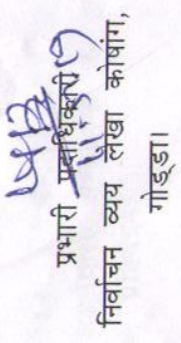 प्रभारी पदाधिकारी
निर्वाचन व्यय लेखा कोषांग,
गोड्डा।